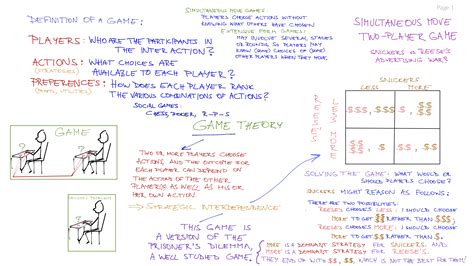 Page 1
DEFINITION OF A GAME:
PLAYERS: WHO ARE THE PARTICIPANTS IN
THE INTERACTION?
ACTIONS: WHAT CHOICES ARE
(STRATEGIES) AVAILABLE TO EACH PLAYER?
PREFERENCES: HOW DOES EACH PLAYER RANK
THE VARIOUS COMBINATIONS OF ACTIONS?
SOCIAL GAMES:
CHESS, POKER, R-P-S
SIMULTANEOUS MOVE GAMES:
PLAYERS CHOOSE ACTIONS WITHOUT
KNOWING WHAT OTHERS HAVE CHOSEN
EXTENSIVE FORM GAMES:
MAY INVOLVE SEVERAL STAGES
OR ROUNDS, SO PLAYERS MAY
KNOW CHOICES OF
OTHER PLAYERS WHEN THEY MOVE.
GAME THEORY
TWO OR MORE PLAYERS CHOOSE
ACTIONS, AND THE OUTCOME FOR
EACH PLAYER CAN DEPEND ON
THE ACTIONS OF THE OTHER
PLAYER(S) AS WELL AS HIS OR
HER OWN ACTION
⇒ STRATEGIC INTERDEPENDENCE
THIS GAME IS
A VERSION OF THE
PRISONER'S DILEMMA,
A WELL STUDIED GAME.
GAME
SIMULTANEOUS MOVE
TWO-PLAYER GAME
SNICKERS vs REESE'S
ADVERTISING WAR?
SNICKERS
LESS MORE
REESE'S
LESS
MORE
$$$, $$$ $, $$$$
$$$$, $ $$, $$
SOLVING THE GAME - WHAT WOULD OR
SHOULD PLAYERS CHOOSE?
SNICKERS MIGHT REASON AS FOLLOWS:
THERE ARE TWO POSSIBILITIES:
REESE'S CHOOSES LESS: I SHOULD CHOOSE
MORE TO GET $$$$ RATHER THAN $$$;
REESE'S CHOOSES MORE: I SHOULD CHOOSE
MORE TO GET $$ RATHER THAN $.
MORE IS A DOMINANT STRATEGY FOR SNICKERS, AND
MORE IS A DOMINANT STRATEGY FOR REESE'S.
THEY END UP WITH $$, $$, WHICH IS NOT THE BEST FOR THEM!